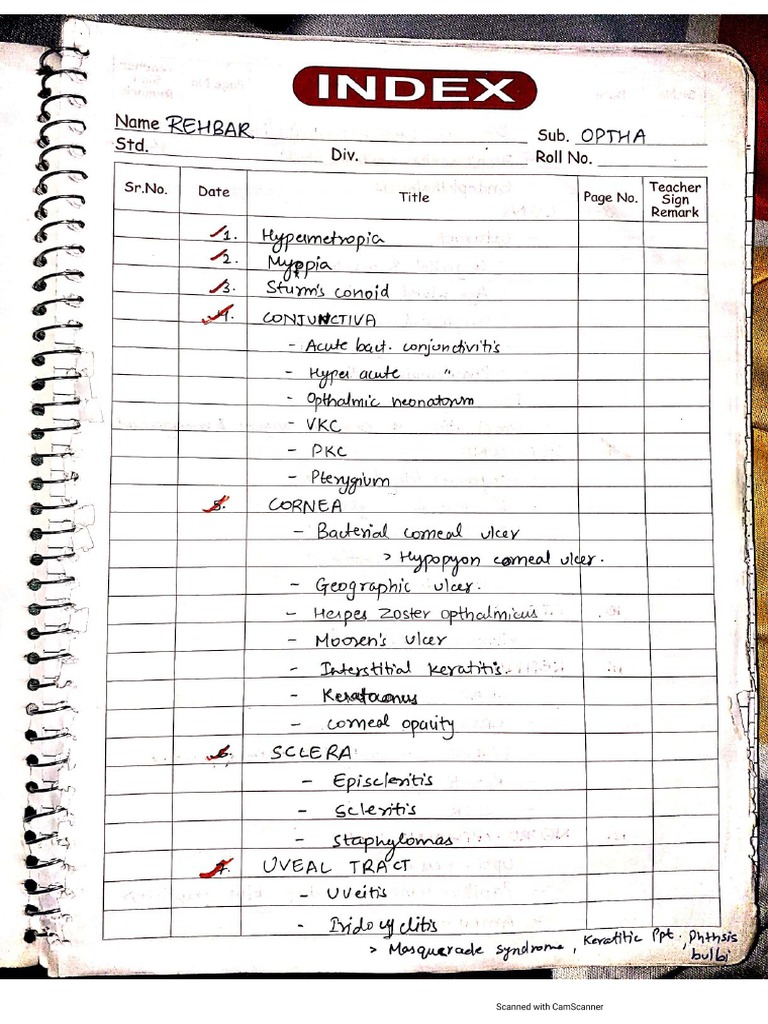 INDEX
Name REHBAR Sub. OPTHA
Std. Div. Roll No.
Sr.No. Date Title Page No. Teacher Sign Remark
1. Hypermetropia
2. Myopia
3. Sturm's conoid
4. CONJUNCTIVA
- Acute bact. conjunctivitis
- Hyper acute "
- Opthalmic neonatorum
- VKC
- PKC
- Pterygium
5. CORNEA
- Bacterial corneal ulcer
> Hypopyon corneal ulcer.
- Geographic ulcer.
- Herpes Zoster opthalmicus
- Mooren's ulcer
- Interstitial keratitis.
- Keratoconus
- corneal opacity
6. SCLERA
- Episcleritis
- Scleritis
- Staphylomas
7. UVEAL TRACT
- Uveitis
- Iridocyclitis
> Masquerade syndrome, Keratitic Ppt., Phthsis
bulbi
Scanned with CamScanner